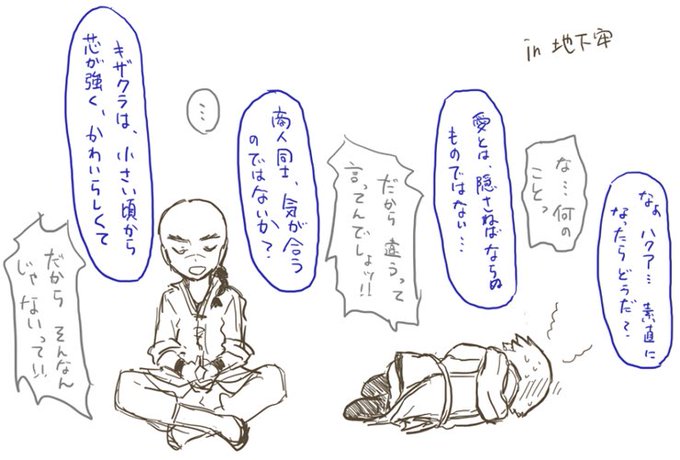 in 地下牢
なぁ ハクア… 素直に
なったらどうだ?
な…何の
ことっ
愛とは、隠さねばならぬ
ものではない…
だから違うって
言ってんでしょッ!!
商人同士、気が合う
のではないか?
…
キザクラは、小さい頃から
芯が強く、かわいらしくて
だから そんなん
じゃないって!!